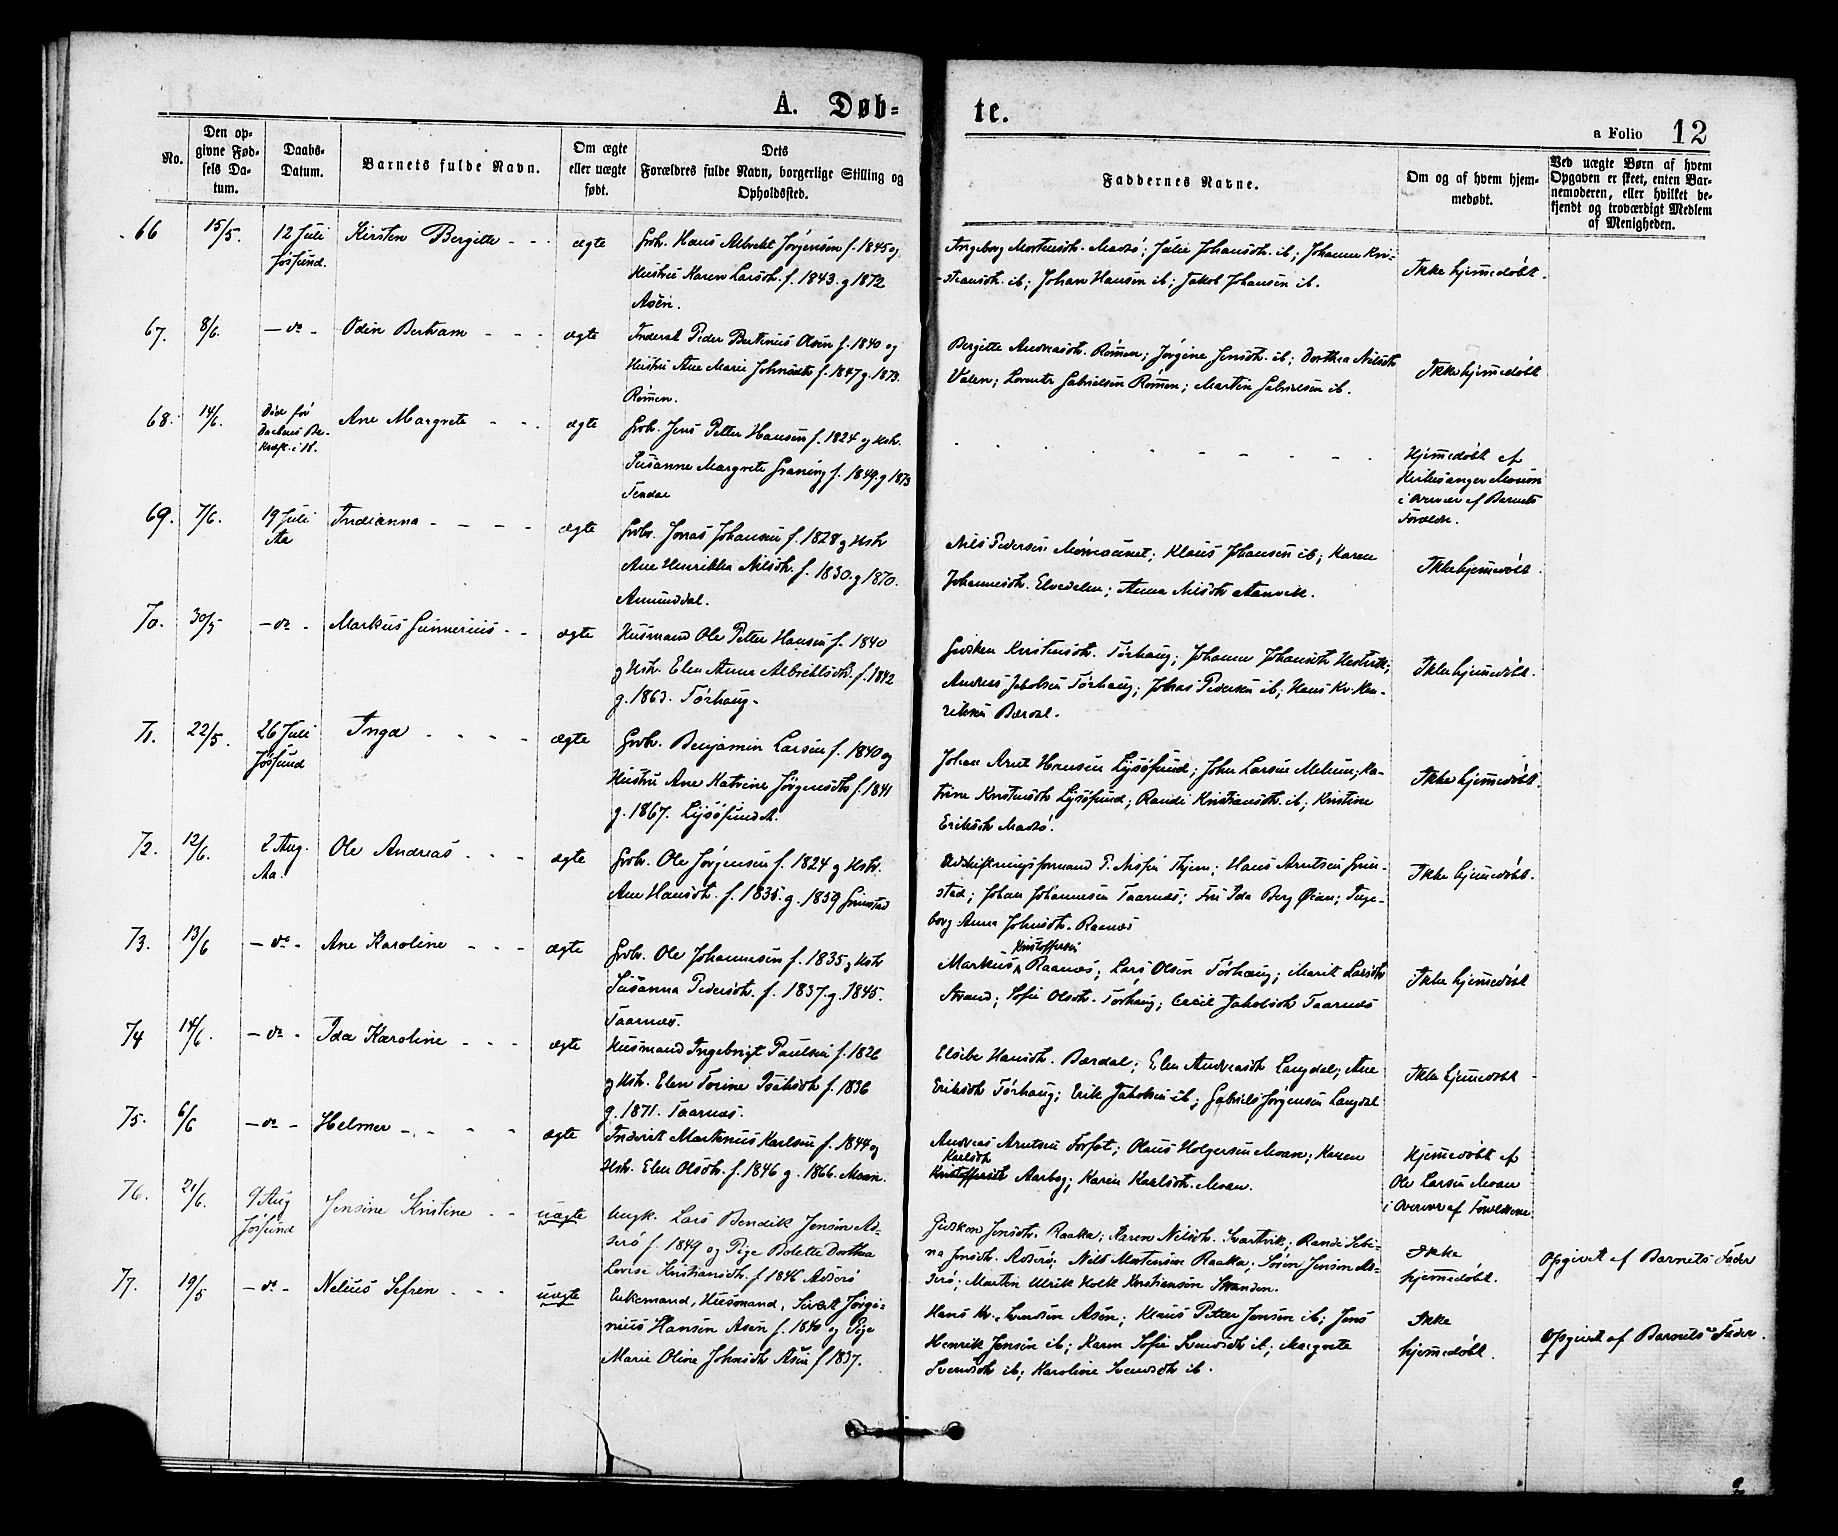 A. Døb=
te.
a Folio 12
No.
Den op-
givne Fød-
sels Da-
tum.
Daabs-
Datum.
Barnets fulde Navn.
Om ægte
eller uægte
født.
Dets
Forældres fulde Navn, borgerlige Stilling og
Opholdssted.
Faddernes Navne.
Om og af hvem hjem-
medøbt.
Ved uægte Børn af hvem
Opgaven er skeet, enten Bar-
nemoderen, eller hvilket be-
kjendt og troværdigt Medlem
af Menigheden.
66 15/5. 12 Juli Kirsten Bergitte - - ægte Grbr. Hans Albrekt Jørgensen f. 1845 og
Jøssund. Hustru Karen Larsdt. f. 1843. g 1872
Asen.
Ingeborg Mortensdt. Madsø; Julie Johansdt. ib; Johanna Kri-
-stiansdt. ib; Johan Hansen ib; Jakob Johansen ib.
Ikke hjemmedøbt.
67. 8/6. - do - Odin Bertram - - - ægte Inderst Peder Bertinus Olsen f. 1840 og
Hustru Ane Marie Johnsdt. f. 1847 g. 1873.
Rømen.
Bergitte Andreasdt. Rømen; Jørgine Jensdt. ib; Dorthea Nilsdt
Valen; Lorents Gabrielsen Rømen; Martin Gabrielsen ib.
Ikke hjemmedøbt
68. 14/6. Død før Ane Margrete - - - ægte Grbr. Jens Petter Hansen f. 1824 og Hstr.
Daabens Be-
kræft. i K.
Susanne Margrete Graning f. 1849. g 1873
Teksdal
Hjemmedøbt af
Kirkesanger
i Overvær af Barnets
Forældre.
69. 7/6. 19 Juli Indianna - - - - ægte Grbr. Jonas Johansen f. 1828 og Hstr
Aa Ane Henrikka Nilsdt. f. 1830. g 1870.
Amunddal.
Nils Pedersen Mørreaunet; Klaus Johansen ib; Karen
Johannesdt. Elvedalen; Anna Nilsdt Aanvik.
Ikke hjemmedøbt.
70. 30/5 - do - Markus Gunnerius - - ægte Husmand Ole Petter Hansen f. 1840
og Hstr. Elen Anna Albrektsdt. f. 1842
g. 1863. Tørhaug.
Gusken Kristensdt. Tørhaug; Johanna Johansdt.
Andreas Jakobsen Tørhaug; Johas Pedersen ib; Hans Kr. Hen-
riksen Bærdal.
Ikke hjemmedøbt.
71. 22/5. 26 Juli Inga - - - - ægte Grbr. Benjamin Larsen f. 1840 og
Jøssund Hustru Ane Katrine Jørgensdt. f. 1841
g. 1867. Lysøsundet.
Johan Arnt Hansen Lysøsund; John Larsen Melum; Ka-
trine Kristensdt Lysøsund; Randi Kristiansdt. ib; Kristine
Eriksdt Madsø.
Ikke hjemmedøbt.
72. 12/6. 2 Aug. Ole Andreas - - - ægte Grbr. Ole Jørgensen f. 1824 og Hstr.
Aa. Ane Hansdt. f. 1835. g. 1859 Grimstad
Udskiftningsformand P. Hans Arntsen Grim-
stad; Johan Johannesen Taarnæs; Frk Ida Berg Øian; Inge-
borg Anna Johnsdt. Raanæs
Ikke hjemmedøbt.
73. 13/6 - do - Ane Karoline - - - ægte Grbr. Ole Johannesen f. 1835 og Hstr
Susanna Pedersdt. f. 1837. g. 1845.
Taarnæs.
Kristoffersen
Markus Raanæs; Lars Olsen Tørhaug; Marit Larsdt
Strand; Sofie Olsdt. Tørhaug; Cecil Jakobsdt Taarnæs
Ikke hjemmedøbt
74 14/6. - do - Ida Karoline - - - ægte Husmand Ingebrigt Paulsen f. 1826
og Hstr. Elen Torine Isaksdt. f. 1836
g. 1871. Taarnæs.
Elsebe Hansdt. Bærdal; Elen Andreasdt Langdal; Ane
Eriksdt Tørhaug; Erik Jakobsen ib; Gabriel Jørgensen Langdal
Ikke hjemmedøbt
75. 6/6 - do - Helmer - - - - ægte Inderst Martinus Karlsen f. 1844 og
Hstr. Elen Olsdt. f. 1846 g. 1866. Moan.
Andreas Arntsen Forfot; Olaus Holgersen Moan; Karen
Karlsdt
Kristoffersdt Aarbog; Karen Karlsdt. Moan.
Hjemmedøbt af
Ole Larsen Moan
i Overvær af Forældrene
76. 21/6. 9 Aug Jensine Kristine - - uægte Ungk. Lars Bendik Jensen As-
Jøssund serø f. 1849 og Pige Bolette Dorthea
Lovise Kristiansdt. f. 1846 Asserø
Gusken Jensdt. Raaka; Karen Nilsdt. Svartvik; Randi Sebi-
na Jensdt. Asserø; Nils Mortensen Raaka; Søren Jensen As-
serø; Martin Ulrik Holk Kristiansen Stranden.
Ikke
hjemmedøbt.
Opgivet af Barnets Fader
77. 19/5 - do - Nelius Sefren - - - uægte Enkemand, Husmand, Sivert Jørgi-
nius Hansen Asen f. 1840 og Pige
Marie Oline Johnsdt Asen f 1837.
Hans Kr. Svendsen Asen; Klaus Petter Jensen ib; Jens
Henrik Jensen ib; Karen Sofie Svendsdt ib; Margrete
Svendsdt ib; Karoline Svendsdt ib.
Ikke
hjemmedøbt.
Opgivet af Barnets Fader.
2